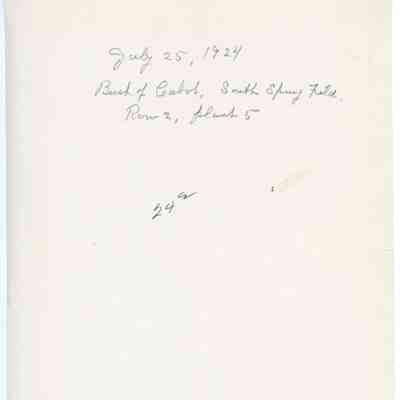 July 25, 1924
Bush of Cabot, South Spring Field.
Row 2, plant 5
24a